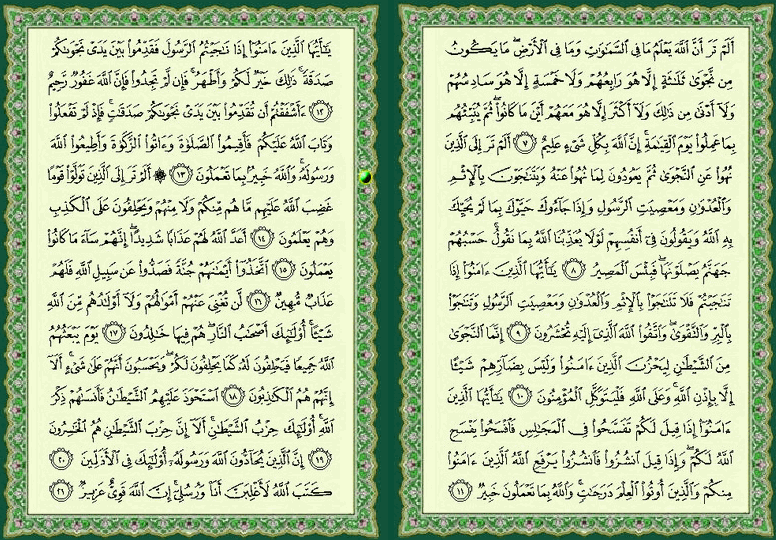 أَلَمْ تَرَ أَنَّ ٱللَّهَ يَعْلَمُ مَا فِى ٱلسَّمَٰوَٰتِ وَمَا فِى ٱلْأَرْضِ ۖ مَا يَكُونُ
مِن نَّجْوَىٰ ثَلَٰثَةٍ إِلَّا هُوَ رَابِعُهُمْ وَلَا خَمْسَةٍ إِلَّا هُوَ سَادِسُهُمْ
وَلَآ أَدْنَىٰ مِن ذَٰلِكَ وَلَآ أَكْثَرَ إِلَّا هُوَ مَعَهُمْ أَيْنَ مَا كَانُوا۟ ۖ ثُمَّ يُنَبِّئُهُم
بِمَا عَمِلُوا۟ يَوْمَ ٱلْقِيَٰمَةِ ۚ إِنَّ ٱللَّهَ بِكُلِّ شَىْءٍ عَلِيمٌ ﴿٧﴾ أَلَمْ تَرَ إِلَى ٱلَّذِينَ
نُهُوا۟ عَنِ ٱلنَّجْوَىٰ ثُمَّ يَعُودُونَ لِمَا نُهُوا۟ عَنْهُ وَيَتَنَٰجَوْنَ بِٱلْإِثْمِ
وَٱلْعُدْوَٰنِ وَمَعْصِيَتِ ٱلرَّسُولِ وَإِذَا جَآءُوكَ حَيَّوْكَ بِمَا لَمْ يُحَيِّكَ
بِهِ ٱللَّهُ وَيَقُولُونَ فِىٓ أَنفُسِهِمْ لَوْلَا يُعَذِّبُنَا ٱللَّهُ بِمَا نَقُولُ ۚ حَسْبُهُمْ
جَهَنَّمُ يَصْلَوْنَهَا ۖ فَبِئْسَ ٱلْمَصِيرُ ﴿٨﴾ يَٰٓأَيُّهَا ٱلَّذِينَ ءَامَنُوٓا۟ إِذَا
تَنَٰجَيْتُمْ فَلَا تَتَنَٰجَوْا۟ بِٱلْإِثْمِ وَٱلْعُدْوَٰنِ وَمَعْصِيَتِ ٱلرَّسُولِ وَتَنَٰجَوْا۟
بِٱلْبِرِّ وَٱلتَّقْوَىٰ ۖ وَٱتَّقُوا۟ ٱللَّهَ ٱلَّذِىٓ إِلَيْهِ تُحْشَرُونَ ﴿٩﴾ إِنَّمَا ٱلنَّجْوَىٰ
مِنَ ٱلشَّيْطَٰنِ لِيَحْزُنَ ٱلَّذِينَ ءَامَنُوا۟ وَلَيْسَ بِضَآرِّهِمْ شَيْـًٔا
إِلَّا بِإِذْنِ ٱللَّهِ ۚ وَعَلَى ٱللَّهِ فَلْيَتَوَكَّلِ ٱلْمُؤْمِنُونَ ﴿١٠﴾ يَٰٓأَيُّهَا ٱلَّذِينَ
ءَامَنُوٓا۟ إِذَا قِيلَ لَكُمْ تَفَسَّحُوا۟ فِى ٱلْمَجَٰلِسِ فَٱفْسَحُوا۟ يَفْسَحِ
ٱللَّهُ لَكُمْ ۖ وَإِذَا قِيلَ ٱنشُزُوا۟ فَٱنشُزُوا۟ يَرْفَعِ ٱللَّهُ ٱلَّذِينَ ءَامَنُوا۟
مِنكُمْ وَٱلَّذِينَ أُوتُوا۟ ٱلْعِلْمَ دَرَجَٰتٍ ۚ وَٱللَّهُ بِمَا تَعْمَلُونَ خَبِيرٌ ﴿١١﴾
يَٰٓأَيُّهَا ٱلَّذِينَ ءَامَنُوٓا۟ إِذَا نَٰجَيْتُمُ ٱلرَّسُولَ فَقَدِّمُوا۟ بَيْنَ يَدَىْ نَجْوَىٰكُمْ
صَدَقَةً ۚ ذَٰلِكَ خَيْرٌ لَّكُمْ وَأَطْهَرُ ۚ فَإِن لَّمْ تَجِدُوا۟ فَإِنَّ ٱللَّهَ غَفُورٌ رَّحِيمٌ
﴿١٢﴾ ءَأَشْفَقْتُمْ أَن تُقَدِّمُوا۟ بَيْنَ يَدَىْ نَجْوَىٰكُمْ صَدَقَٰتٍ ۚ فَإِذْ لَمْ تَفْعَلُوا۟
وَتَابَ ٱللَّهُ عَلَيْكُمْ فَأَقِيمُوا۟ ٱلصَّلَوٰةَ وَءَاتُوا۟ ٱلزَّكَوٰةَ وَأَطِيعُوا۟ ٱللَّهَ
وَرَسُولَهُۥ ۚ وَٱللَّهُ خَبِيرٌۢ بِمَا تَعْمَلُونَ ﴿١٣﴾ ۞ أَلَمْ تَرَ إِلَى ٱلَّذِينَ تَوَلَّوْا۟ قَوْمًا
غَضِبَ ٱللَّهُ عَلَيْهِم مَّا هُم مِّنكُمْ وَلَا مِنْهُمْ وَيَحْلِفُونَ عَلَى ٱلْكَذِبِ
وَهُمْ يَعْلَمُونَ ﴿١٤﴾ أَعَدَّ ٱللَّهُ لَهُمْ عَذَابًا شَدِيدًا ۖ إِنَّهُمْ سَآءَ مَا كَانُوا۟
يَعْمَلُونَ ﴿١٥﴾ ٱتَّخَذُوٓا۟ أَيْمَٰنَهُمْ جُنَّةً فَصَدُّوا۟ عَن سَبِيلِ ٱللَّهِ فَلَهُمْ
عَذَابٌ مُّهِينٌ ﴿١٦﴾ لَّن تُغْنِىَ عَنْهُمْ أَمْوَٰلُهُمْ وَلَآ أَوْلَٰدُهُم مِّنَ ٱللَّهِ
شَيْـًٔا ۚ أُو۟لَٰٓئِكَ أَصْحَٰبُ ٱلنَّارِ ۖ هُمْ فِيهَا خَٰلِدُونَ ﴿١٧﴾ يَوْمَ يَبْعَثُهُمُ
ٱللَّهُ جَمِيعًا فَيَحْلِفُونَ لَهُۥ كَمَا يَحْلِفُونَ لَكُمْ ۖ وَيَحْسَبُونَ أَنَّهُمْ عَلَىٰ شَىْءٍ ۚ أَلَآ
إِنَّهُمْ هُمُ ٱلْكَٰذِبُونَ ﴿١٨﴾ ٱسْتَحْوَذَ عَلَيْهِمُ ٱلشَّيْطَٰنُ فَأَنسَىٰهُمْ ذِكْرَ
ٱللَّهِ ۚ أُو۟لَٰٓئِكَ حِزْبُ ٱلشَّيْطَٰنِ ۚ أَلَآ إِنَّ حِزْبَ ٱلشَّيْطَٰنِ هُمُ ٱلْخَٰسِرُونَ
﴿١٩﴾ إِنَّ ٱلَّذِينَ يُحَآدُّونَ ٱللَّهَ وَرَسُولَهُۥٓ أُو۟لَٰٓئِكَ فِى ٱلْأَذَلِّينَ ﴿٢٠﴾
كَتَبَ ٱللَّهُ لَأَغْلِبَنَّ أَنَا۠ وَرُسُلِىٓ ۚ إِنَّ ٱللَّهَ قَوِىٌّ عَزِيزٌ ﴿٢١﴾